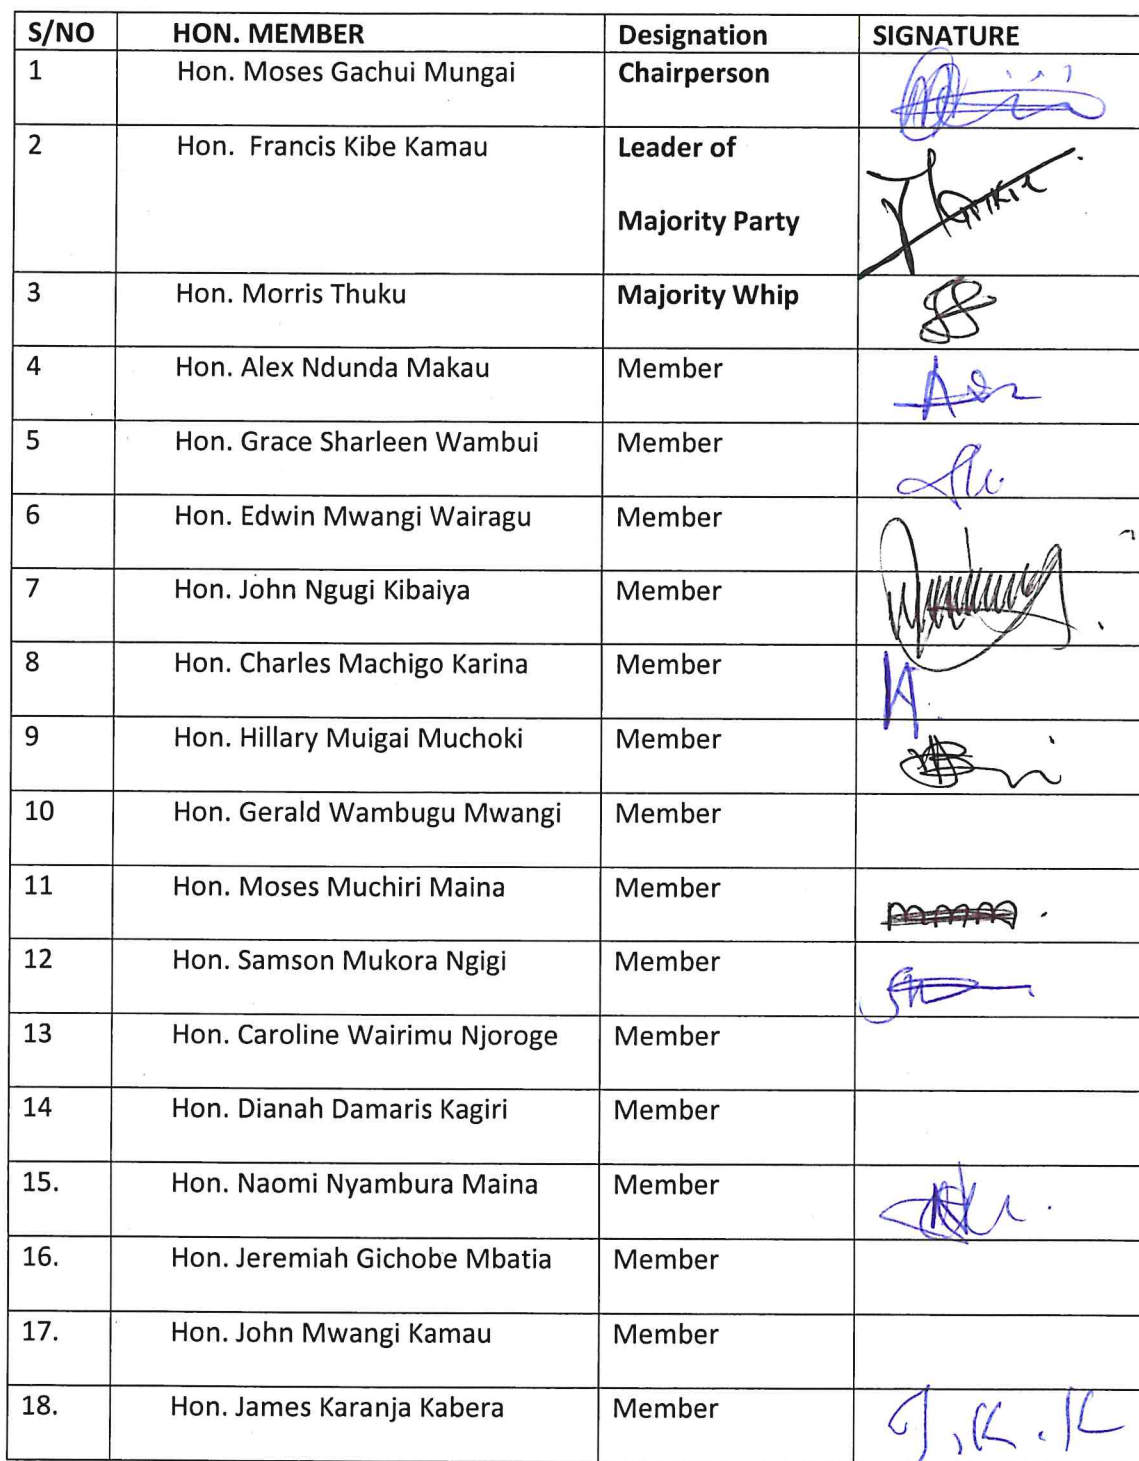 S/NO HON. MEMBER Designation SIGNATURE
1 Hon. Moses Gachui Mungai Chairperson
2 Hon. Francis Kibe Kamau Leader of
Majority Party
3 Hon. Morris Thuku Majority Whip
4 Hon. Alex Ndunda Makau Member
5 Hon. Grace Sharleen Wambui Member
6 Hon. Edwin Mwangi Wairagu Member
7 Hon. John Ngugi Kibaiya Member
8 Hon. Charles Machigo Karina Member
9 Hon. Hillary Muigai Muchoki Member
10 Hon. Gerald Wambugu Mwangi Member
11 Hon. Moses Muchiri Maina Member
12 Hon. Samson Mukora Ngigi Member
13 Hon. Caroline Wairimu Njoroge Member
14 Hon. Dianah Damaris Kagiri Member
15. Hon. Naomi Nyambura Maina Member
16. Hon. Jeremiah Gichobe Mbatia Member
17. Hon. John Mwangi Kamau Member
18. Hon. James Karanja Kabera Member J.K.K